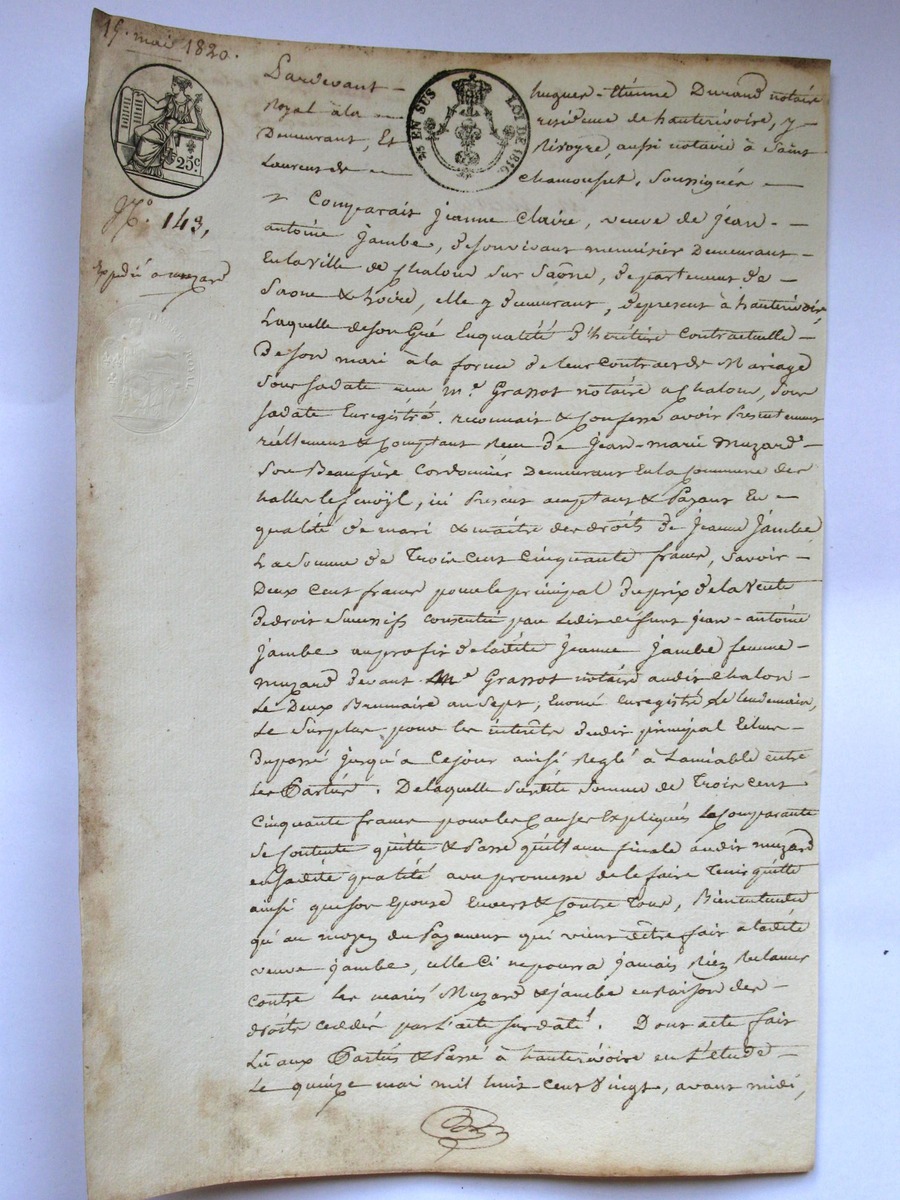 15. mai 1820.
25 EN SUS
LOI DE 1816.
25c.
No. 143,
Expédié a muzard
Pardevant hugues-Etienne Durand notaire
Royal à la résidence de hauterivoire, y
Demeurant, Et Rivoyre, aussi notaire à Saint
Laurent de chamousset, Soussignés
Comparait jeanne Claire, veuve de jean-
antoine jambe, de son vivant menuisier Demeurant
En la ville de chalon sur Saône, département de
Saone & Loire, elle y demeurant, de present à hauterivoire
Laquelle de son Gré En qualité d'héritière Contractuelle
De son mari à la forme de leur Contract de Mariage
Sous sa date reçu Me. Grassot notaire a Chalon, Sous
sa date Enregistré. reconnait & Confesse avoir Presentement
réellement & Comptant reçu De jean-marie Muzard
Son Beaufrère Cordonnier Demeurant En la Commune des
halles le , ici Present acceptant & Payant En
qualité de mari & maître des droits de jeanne jambe
La Somme de Trois Cent Cinquante francs, Savoir
Deux Cent francs pour le principal du prix de la Vente
De droits Successifs consentie par Ledit défunt jean-antoine
jambe au profit de ladite jeanne jambe femme
muzard devant Me Grassot notaire audit Chalon
Le Deux Brumaire an Sept, Enregistré Le lendemain,
Le Surplus pour les intérêts dudit principal
Du passé jusqu'a Ce jour ainsi Reglé à Lamiable entre
Les Parties. De laquelle Susdite Somme de Trois Cent
Cinquante francs pour les Causes Expliqués La Comparante
Se Contente quitte & Passe quittance finale audit muzard
en Sadite qualité avec promesse de le faire Tenir quitte
ainsi que son Epouse Envers & Contre Tous, Bien entendu
qu'au moyen du Payement qui vient d'être fait a ladite
veuve jambe, celle Ci ne pourra jamais Rien Reclamer
Contre les mariés Muzard & jambe en raison des
droits Cedés par L'acte Sus daté. Dont acte fait
Lu aux Parties & Passé à hauterivoire en L'étude
Le quinze mai mil huit Cent Vingt, avant midi,